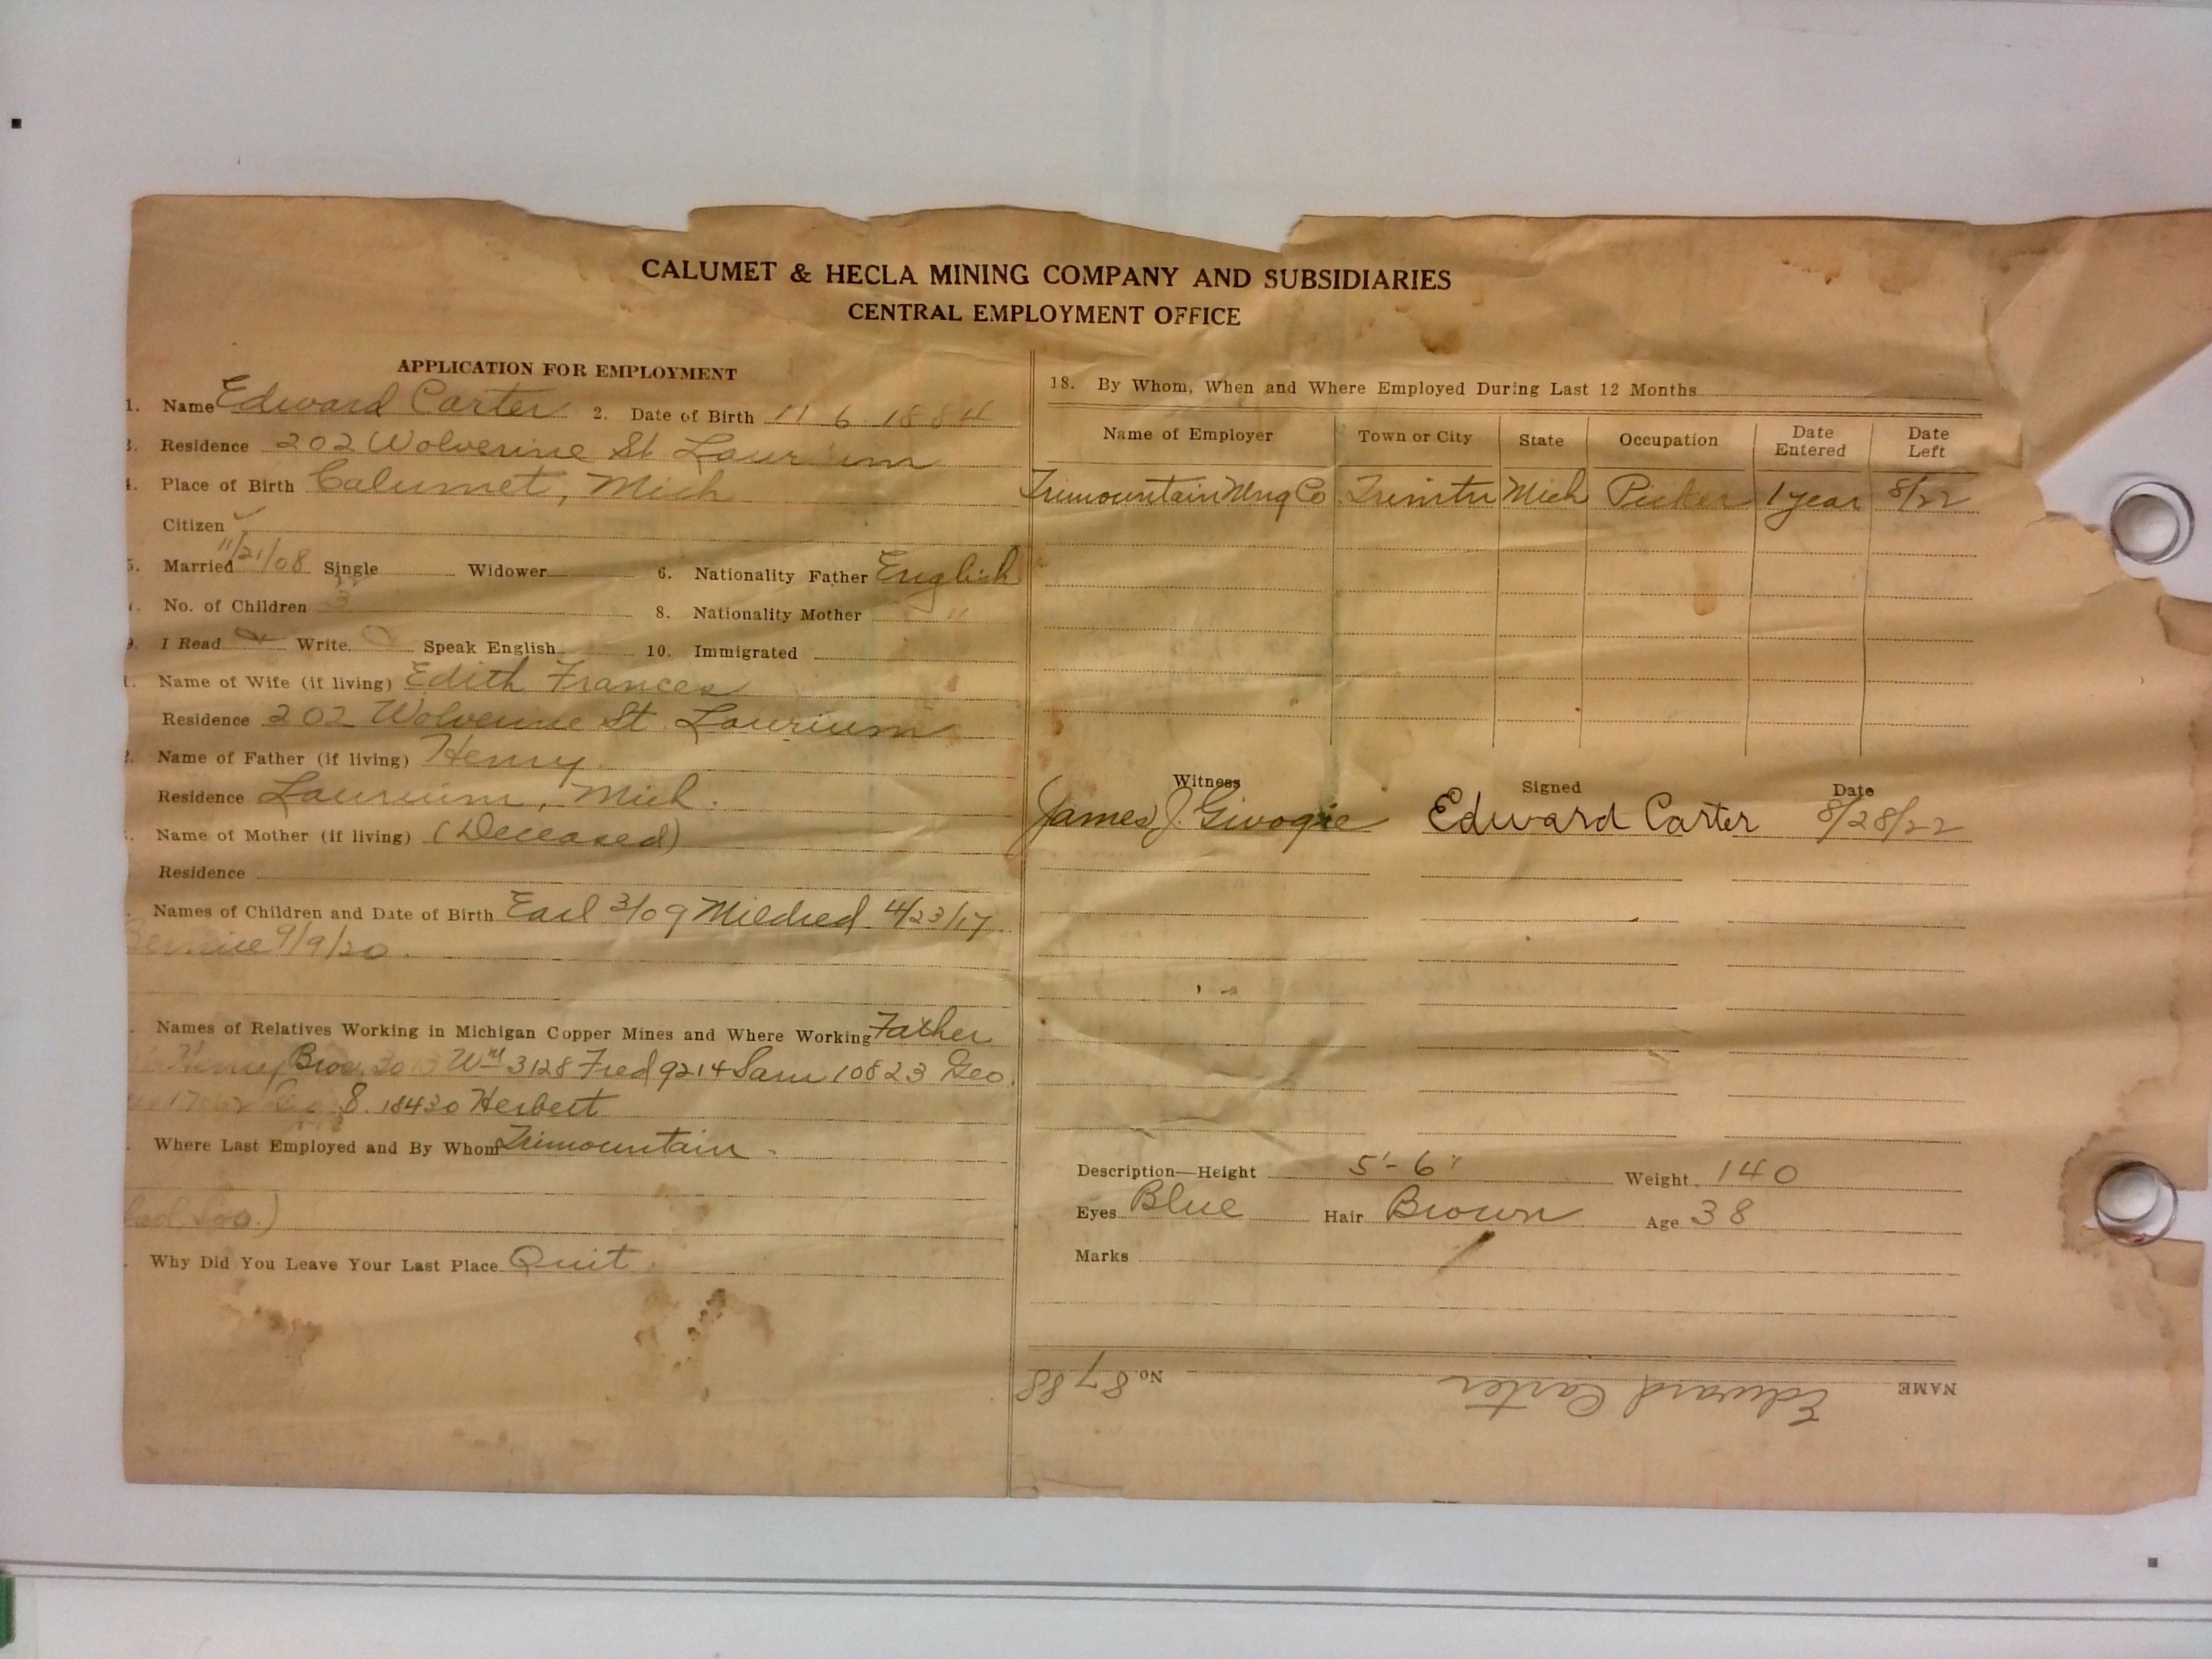 CALUMET & HECLA MINING COMPANY AND SUBSIDIARIES
CENTRAL EMPLOYMENT OFFICE
APPLICATION FOR EMPLOYMENT
1. Name Edward Carter 2. Date of Birth 11 6 1884
3. Residence 202 Wolverine St Laurium
4. Place of Birth Calumet, Mich
Citizen ✓
5. Married 11/21/08 Single Widower 6. Nationality Father English
No. of Children 3 8. Nationality Mother "
9. I Read Write Speak English 10. Immigrated
Name of Wife (if living) Edith Frances
Residence 202 Wolverine St. Laurium
Name of Father (if living) Henry
Residence Laurium, Mich.
Name of Mother (if living) (Deceased)
Residence
Names of Children and Date of Birth Earl 3/09 Mildred 4/23/17
9/9/20
Names of Relatives Working in Michigan Copper Mines and Where Working Father
Henry Bros. Wm 3128 Fred 9214 Sam 10823 Geo.
8. 18430 Herbert
Where Last Employed and By Whom Trimountain
Why Did You Leave Your Last Place Quit
18. By Whom, When and Where Employed During Last 12 Months
Name of Employer Town or City State Occupation Date Entered Date Left
Trimountain Mng Co Mich Picker 1 year 8/22
Witness Signed Date
James J. Edward Carter 8/28/22
Description—Height 5'-6" Weight 140
Eyes Blue Hair Brown Age 38
Marks
NAME Edward Carter No. 8788